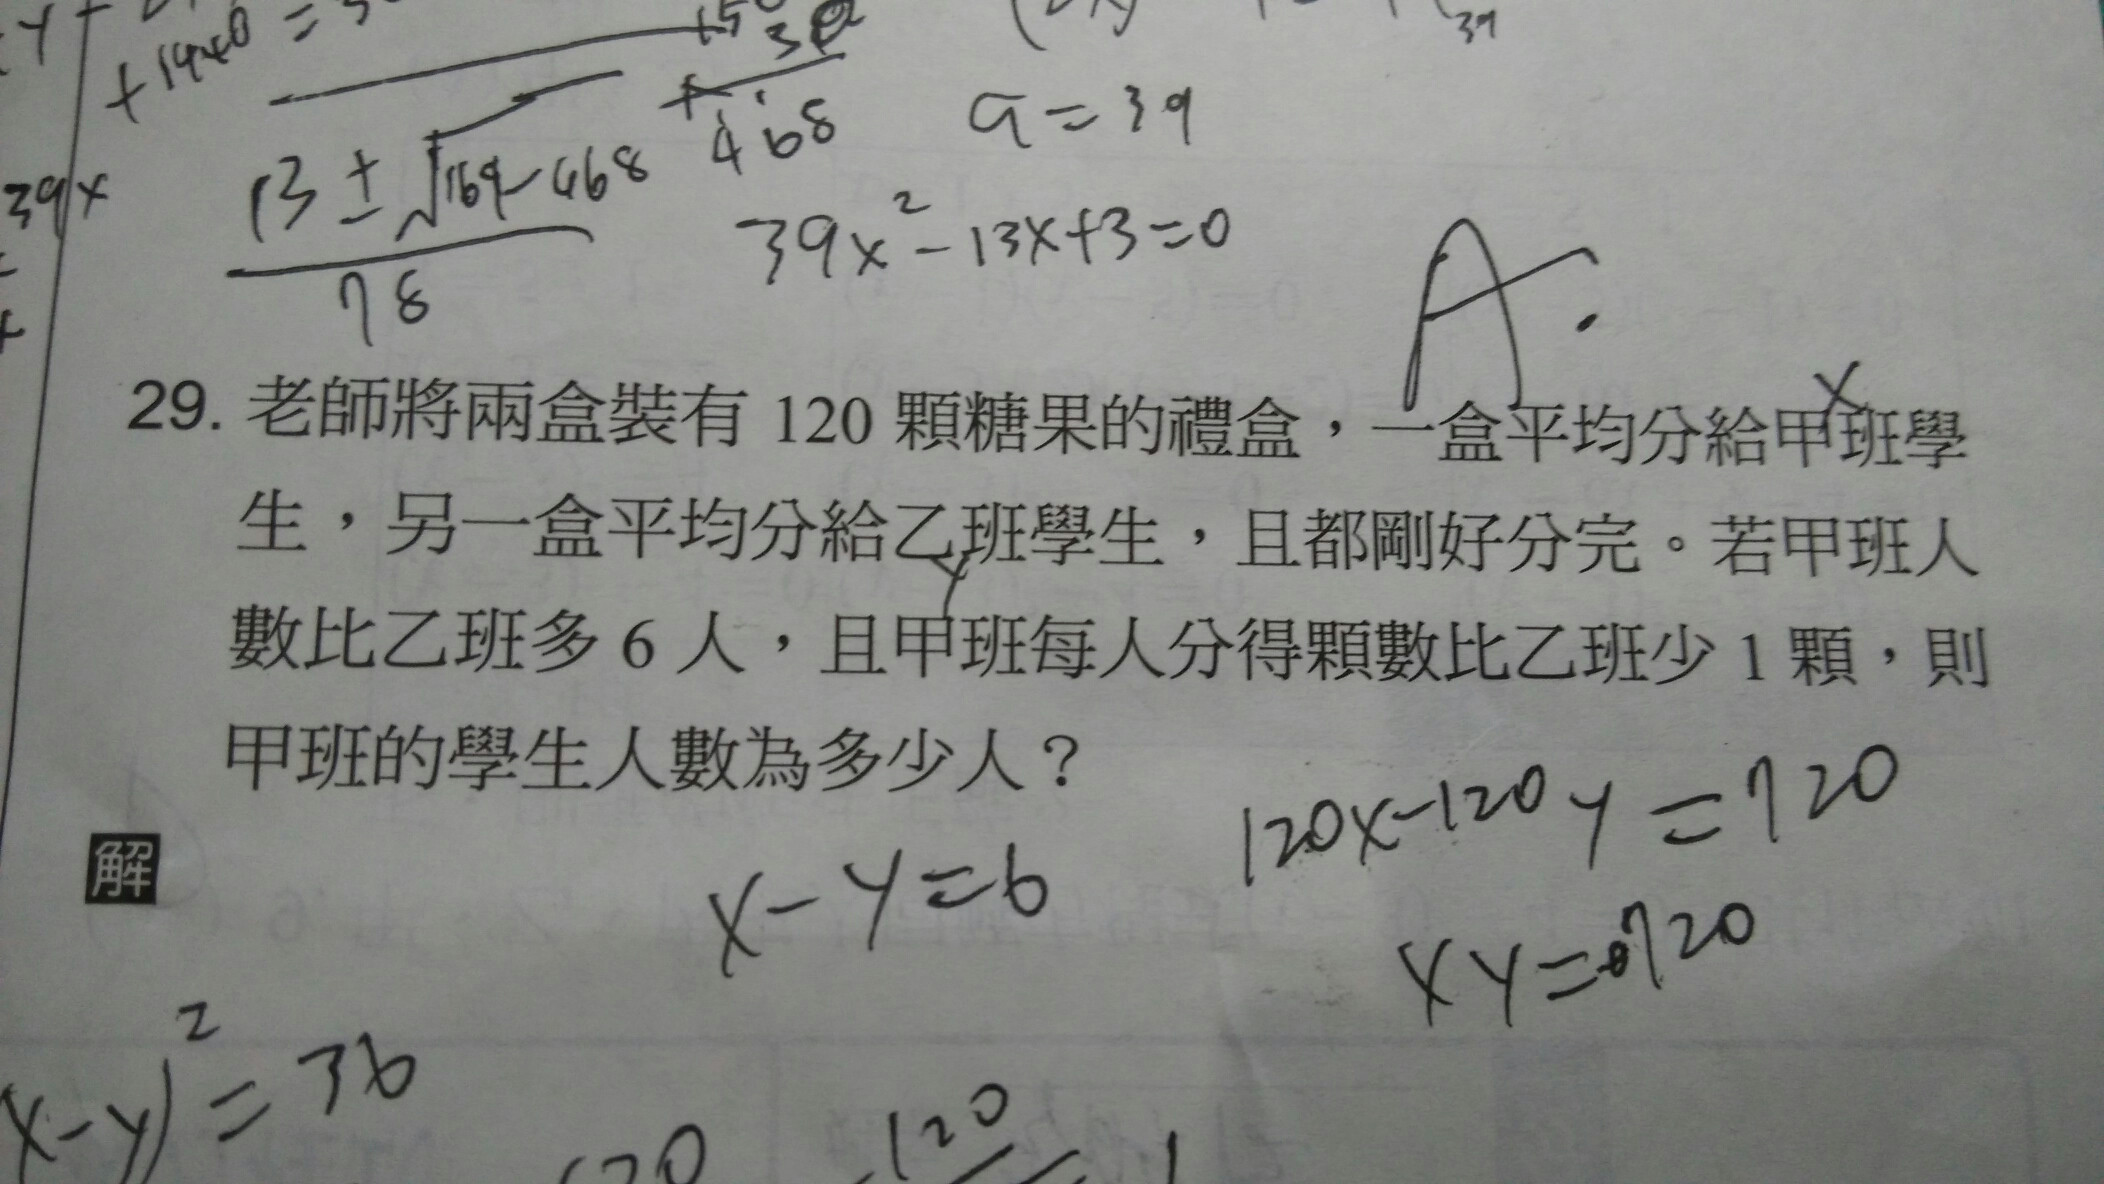 +1440=3
39
39x
13±√169-468
78
+468
a=39
39x²-13x+3=0
A:
x
29. 老師將兩盒裝有 120 顆糖果的禮盒，一盒平均分給甲班學
生，另一盒平均分給乙班學生，且都剛好分完。若甲班人
y
數比乙班多 6 人，且甲班每人分得顆數比乙班少 1 顆，則
甲班的學生人數為多少人？
120x-120y=720
解
x-y=6
xy=720
x-y)²=36
120